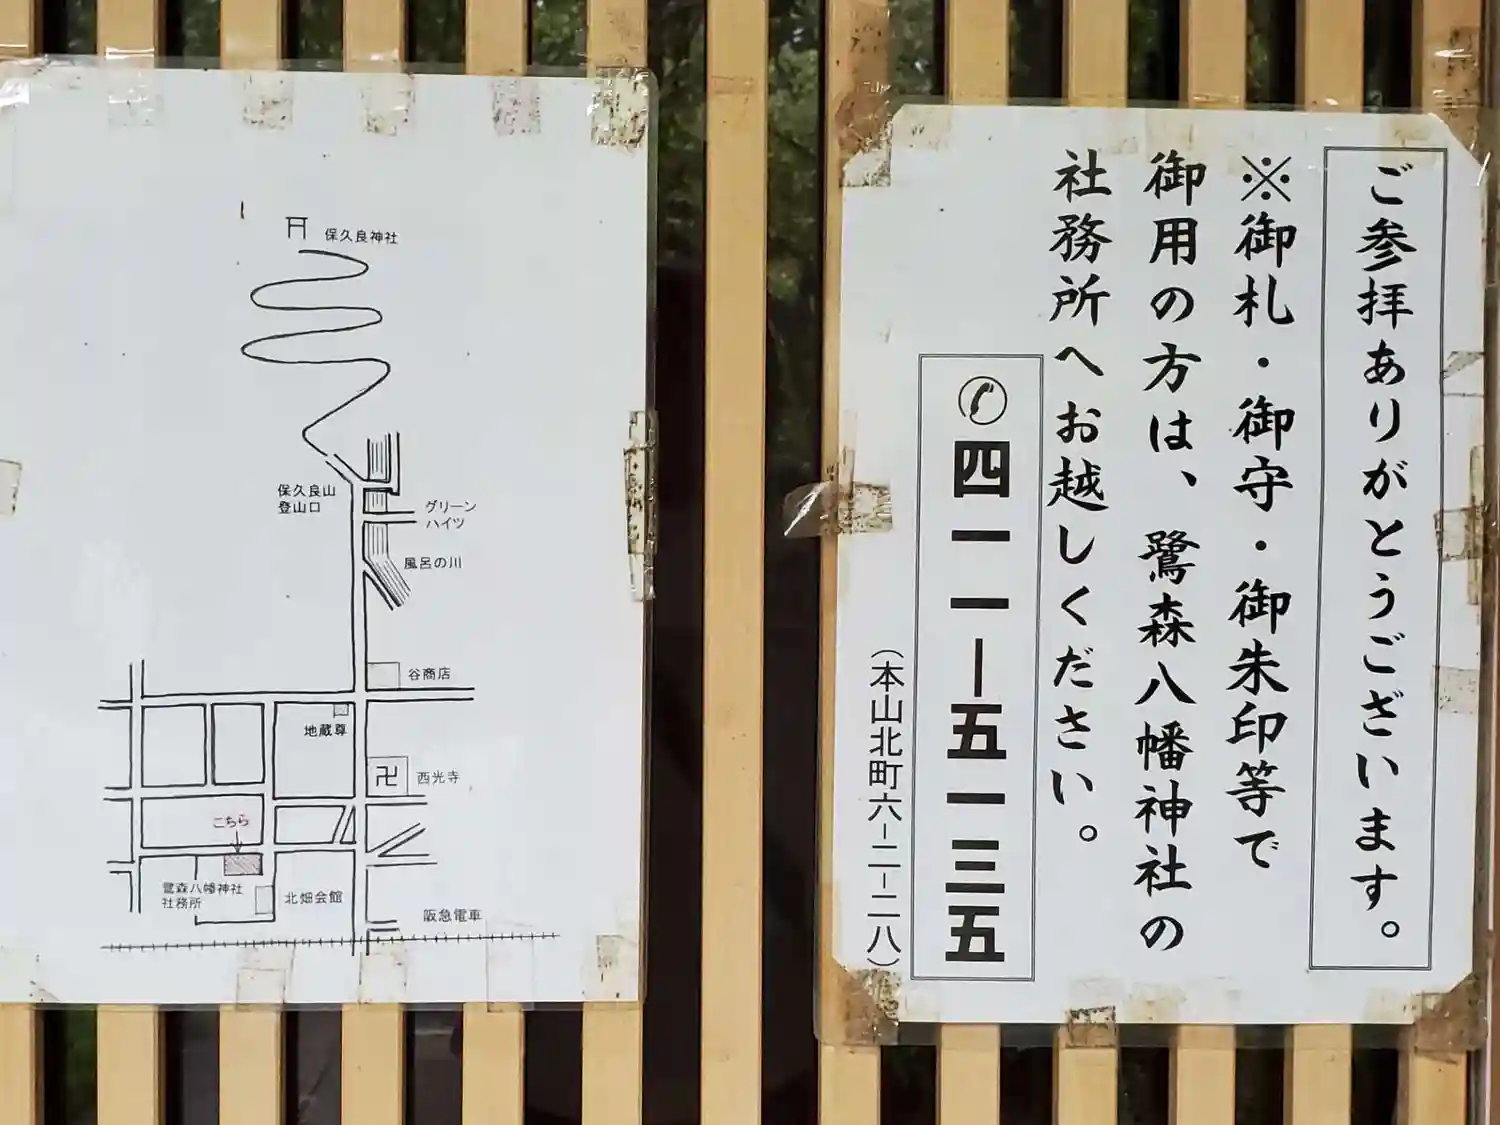 ご参拝ありがとうございます。
※御札・御守・御朱印等で
御用の方は、鷺森八幡神社の
社務所へお越しください。
四一一ー五一三五
（本山北町六ー二ー二八）
保久良神社
保久良山
登山口
グリーン
ハイツ
風呂の川
谷商店
地蔵尊
卍
西光寺
こちら
鷺森八幡神社
社務所
北畑会館
阪急電車